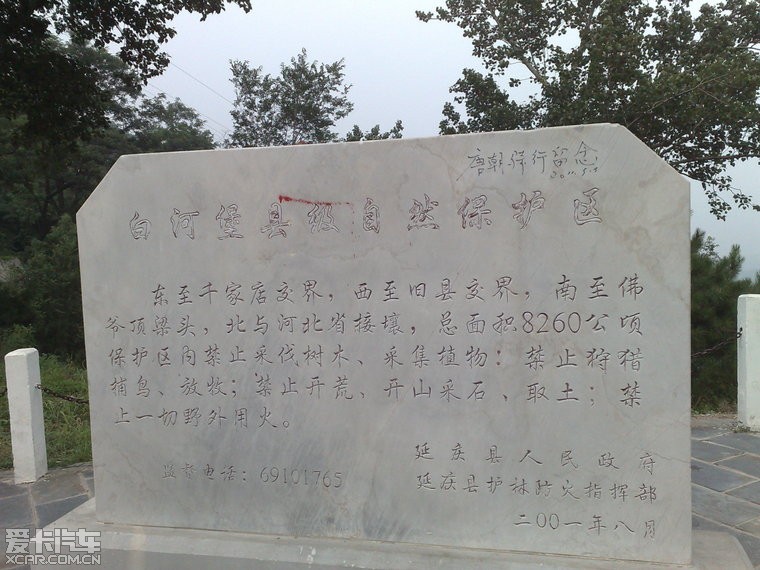 唐朝徉行留念
2011.5.1
白河堡县级自然保护区
东至千家店交界，西至旧县交界，南至佛
爷顶梁头，北与河北省接壤，总面积8260公顷
保护区内禁止采伐树木、采集植物；禁止狩猎
捕鸟、放牧；禁止开荒、开山采石、取土；禁
止一切野外用火。
延庆县人民政府
监督电话：69101765
延庆县护林防火指挥部
二00一年八月
爱卡汽车
XCAR.COM.CN